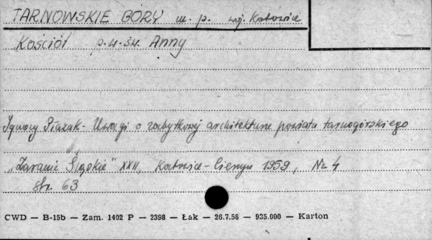 TARNOWSKIE GÓRY m. p. woj. Katowice
Kościół p.w. św. Anny
Ignacy Płazak - Uwagi o zabytkowej architekturze powiatu tarnogórskiego
„Zaranie Śląskie" XXII, Katowice-Cieszyn 1959, Nr 4
str. 63
CWD — B-15b — Zam. 1402 P — 2398 — Łak — 26.7.56 — 925.000 — Karton